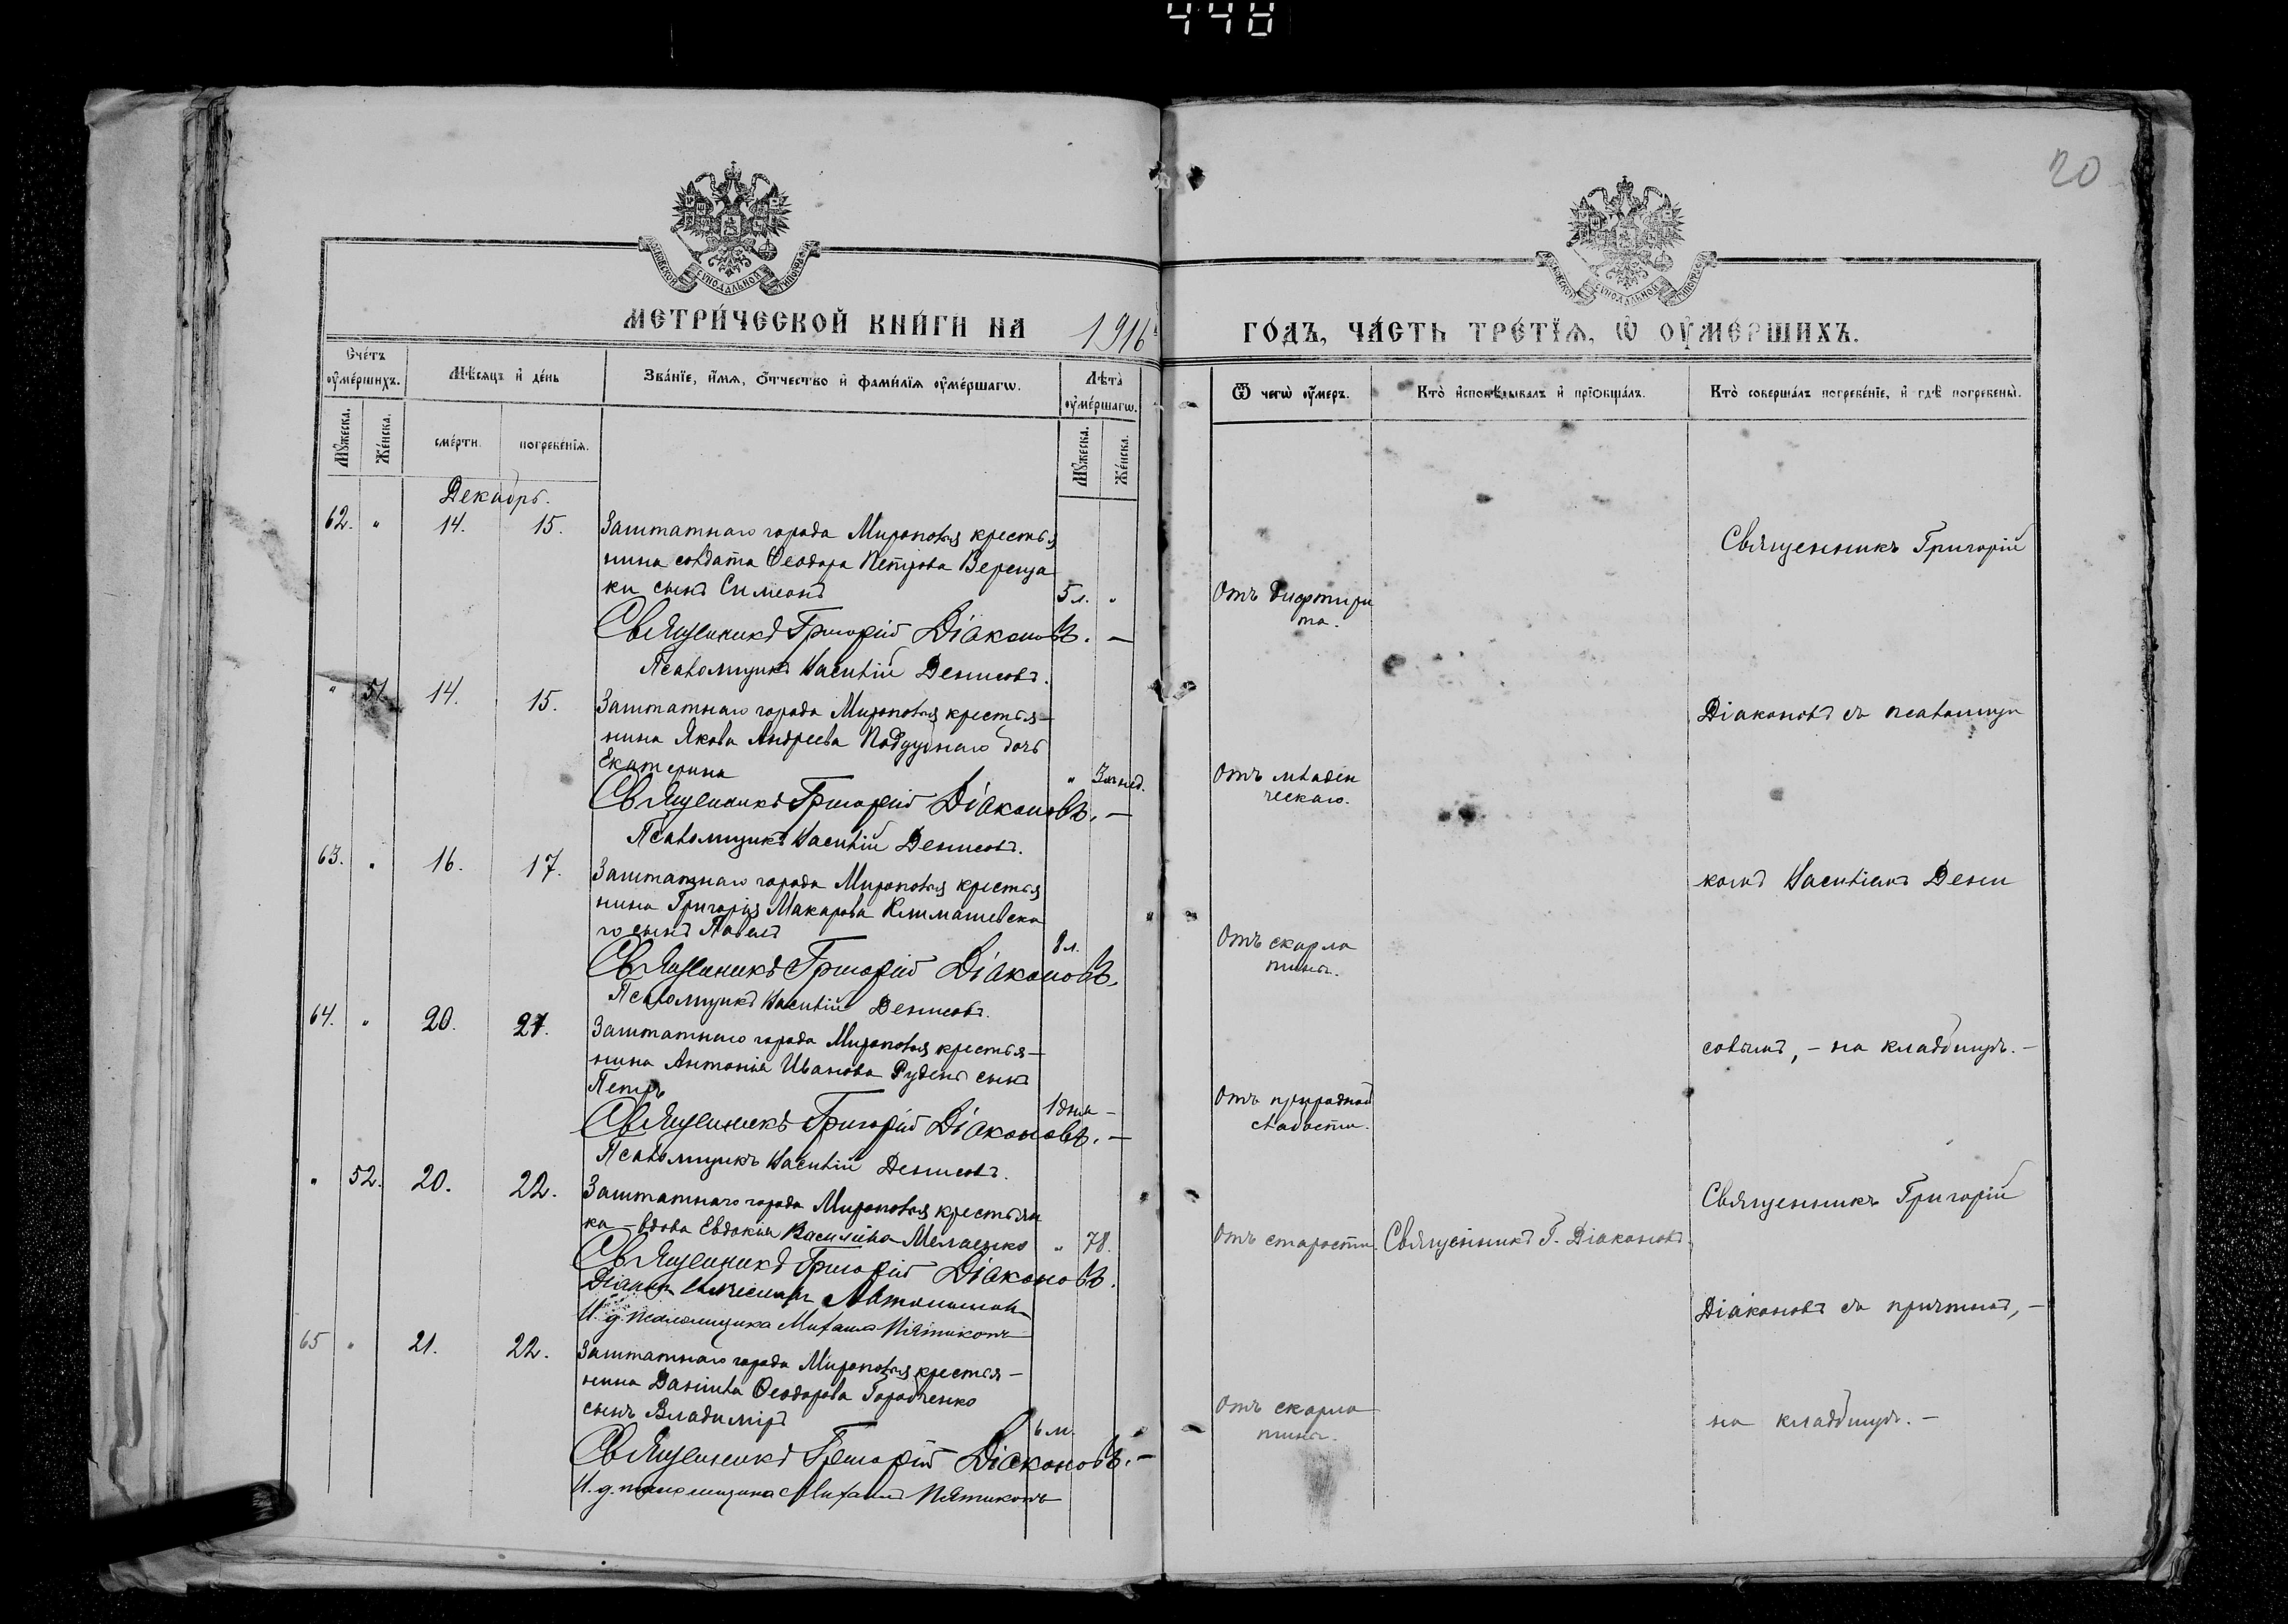 448
20
МЕТРИ́ЧЕСКОЙ КНИ́ГИ НА 1916
ГО́ДЪ, ЧА́СТЬ ТРЕ́ТІѦ, Ѡ҆ ОУ҆МЕ́РШИХЪ.
Сче́тъ оу҆ме́ршихъ.
Мѣ́сяцъ и҆ де́нь
Зва́нїе, и҆́мѧ, ѻ҆́тчество и҆ фами́лїѧ оу҆ме́ршагѡ.
Лѣ́та оу҆ме́ршагѡ.
Мꙋ́жеска.
Же́нска.
сме́рти.
погребе́нїѧ.
Мꙋ́жеска.
Же́нска.
Ѿ чегѡ̀ оу҆́меръ.
Кто̀ и҆сповѣ́дывалъ и҆ прїѻбща́лъ.
Кто̀ соверша́лъ погребе́нїе, и҆ гдѣ̀ погребены̀.
Декабрь.
62. " 14. 15. Заштатнаго города Мирополья крестья
нина солдата Ѳеодора Петрова Вереща
ки сынъ Симеонъ 5 л. "
Священникъ Григорій Діаконовъ. —
Псаломщикъ Василій Денисовъ.
Отъ дифтери
та.
Священникъ Григорій
" 51. 14. 15. Заштатнаго города Мирополья крестья—
нина Якова Андреева Поддубнаго дочь
Екатерина " 3 нед.
Священникъ Григорій Діаконовъ. —
Псаломщикъ Василій Денисовъ.
Отъ младен
ческаго.
Діаконовъ съ псаломщи
63. " 16. 17. Заштатнаго города Мирополья крестья
нина Григорія Макарова Климашевска
го сынъ Павелъ 8 л.
Священникъ Григорій Діаконовъ.
Псаломщикъ Василій Денисовъ.
Отъ скарла
тины.
комъ Василіемъ Дени
64. " 20. 21. Заштатнаго города Мирополья крестья—
нина Антонія Иванова Рудень сынъ
Петръ 1 дня —
Священникъ Григорій Діаконовъ. —
Псаломщикъ Василій Денисовъ.
Отъ природной
слабости.
совымъ, — на кладбищѣ. —
" 52. 20. 22. Заштатнаго города Мирополья крестьян
ка — вдова Евдокія Василіева " 78.
Священникъ Григорій Діаконовъ.
Діаконъ
И. д. псаломщика Михаилъ Пятиконъ
Отъ старости. Священникъ Г. Діаконовъ.
Священникъ Григорій
Діаконовъ съ причтомъ, —
65 " 21. 22. Заштатнаго города Мирополья крестья—
нина Даніила Ѳеодорова Городченко
сынъ Владиміръ 6 м.
Священникъ Григорій Діаконовъ. —
И. д. псаломщика Михаилъ Пятиконъ
Отъ скарла
тины.
на кладбищѣ. —